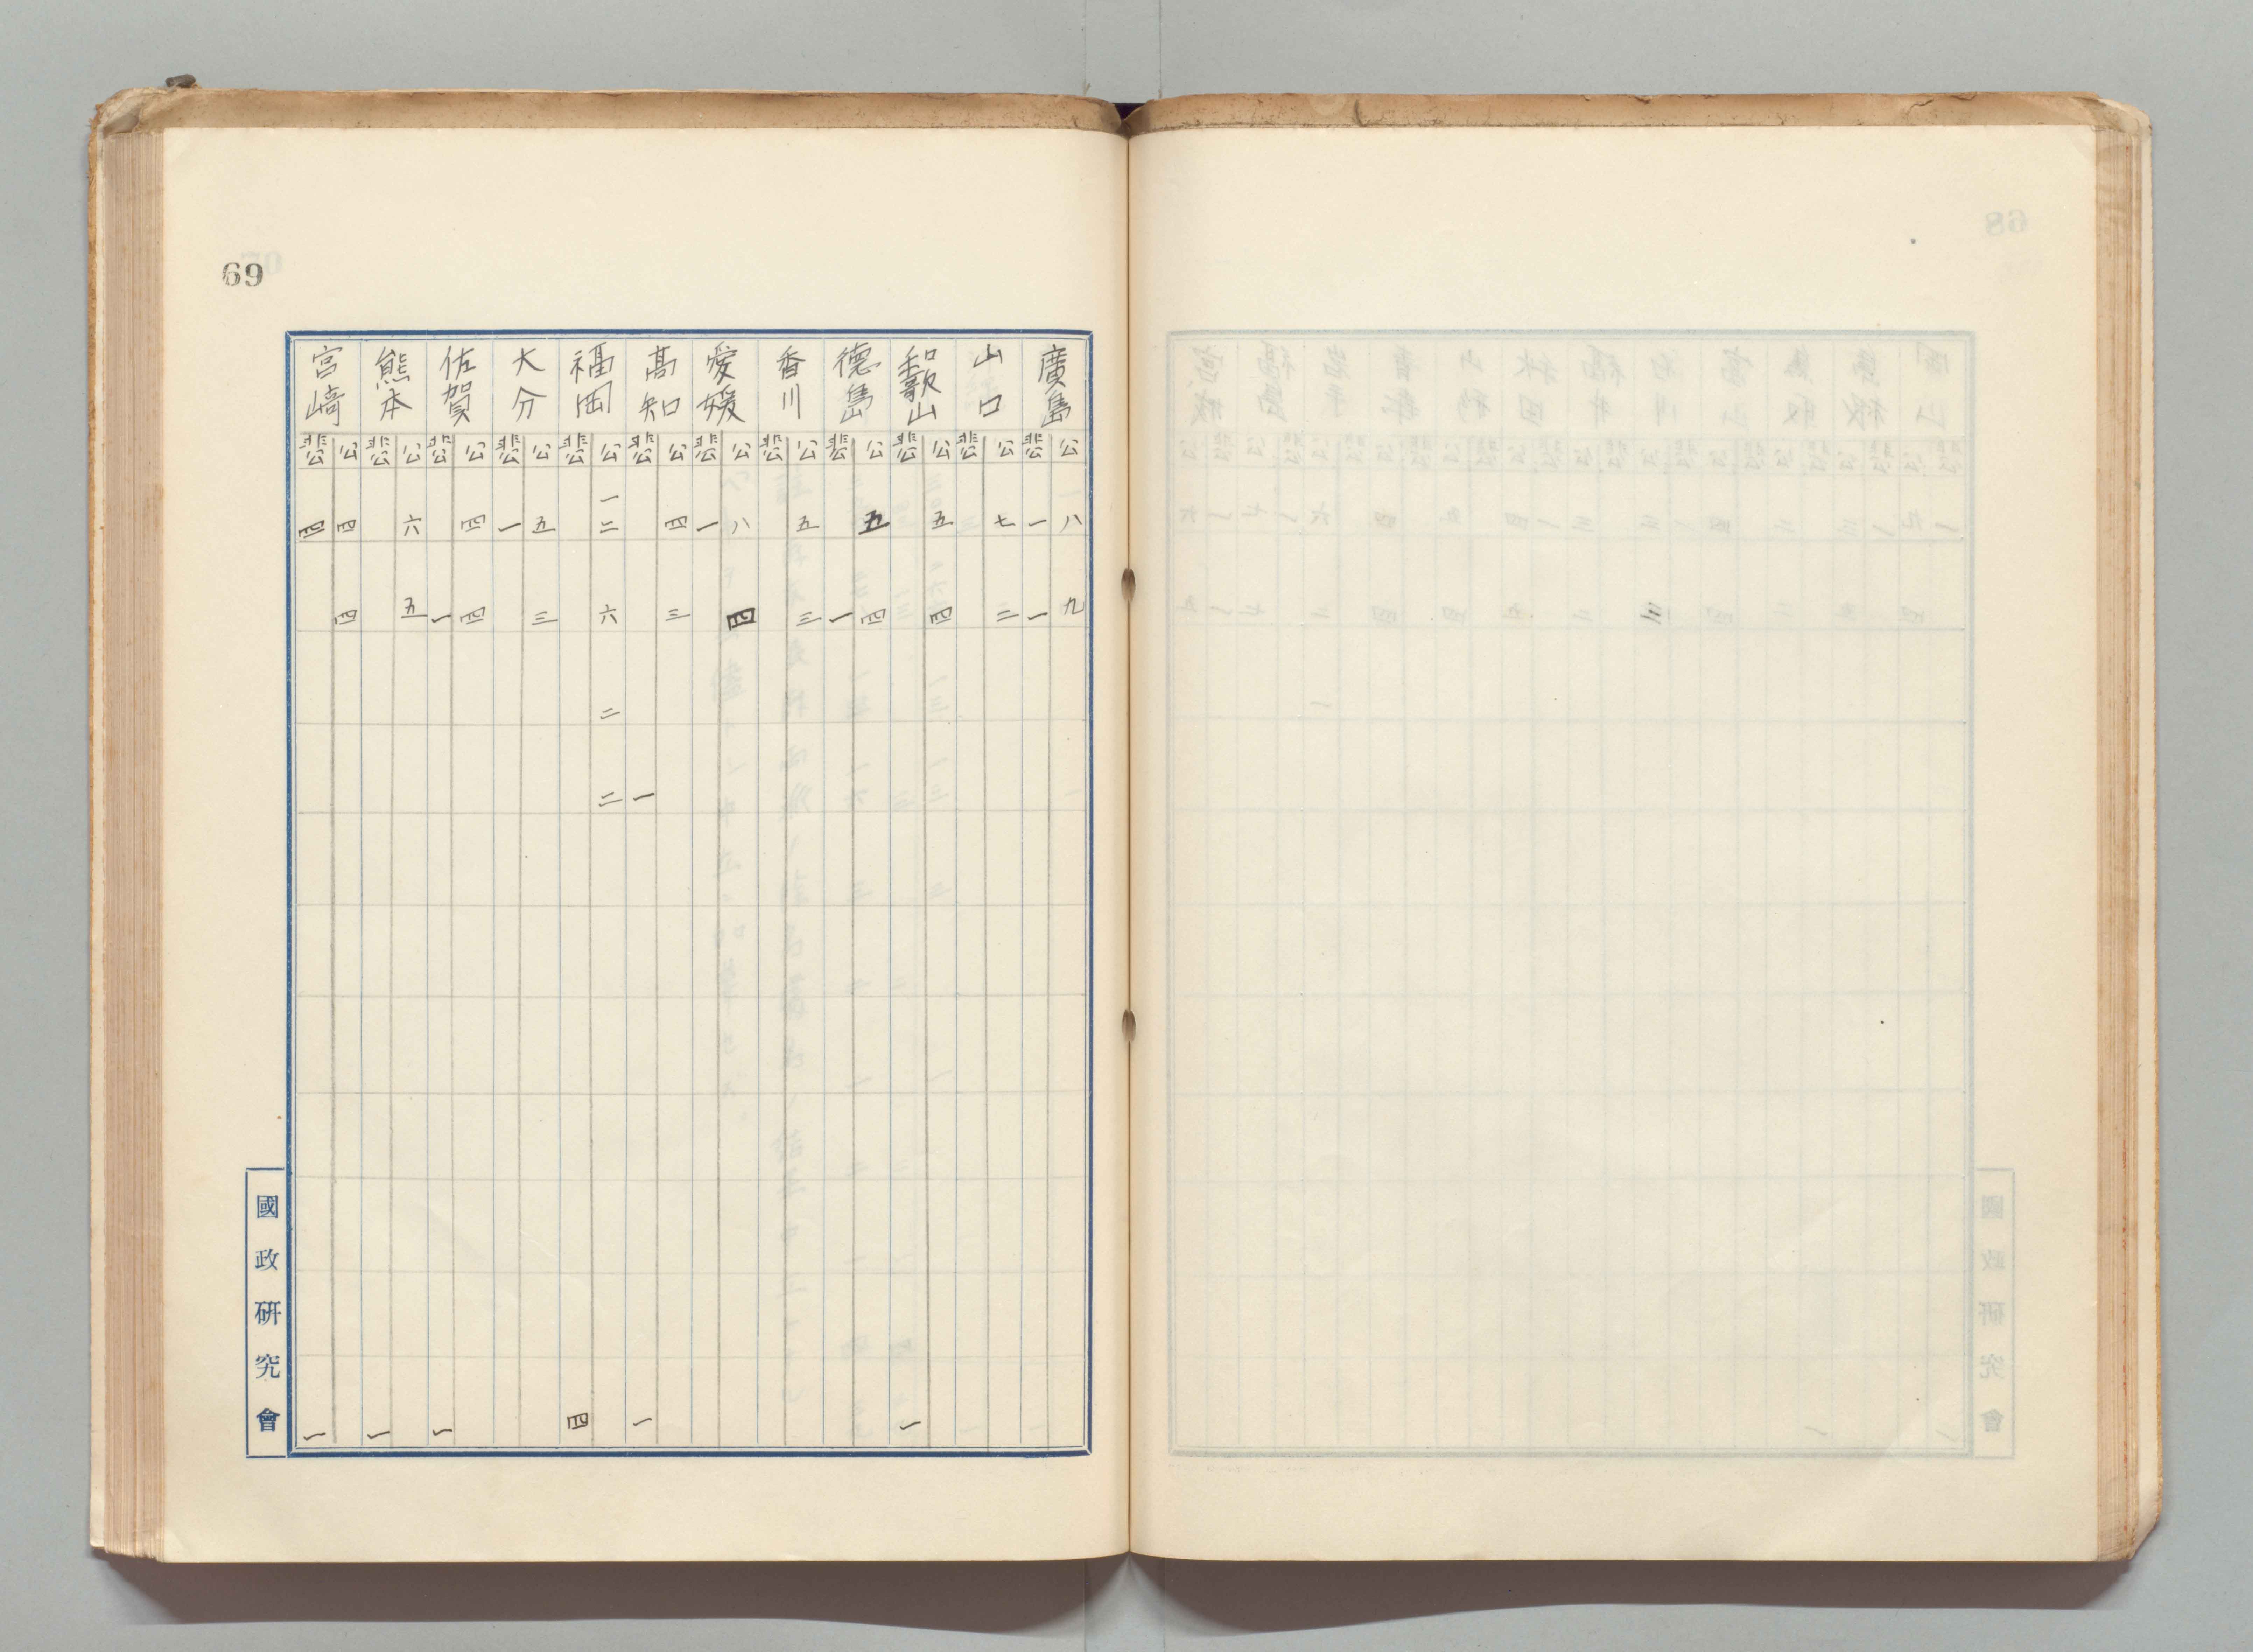 69
廣島 山口 和歌山 德島 香川 愛媛 高知 福岡 大分 佐賀 熊本 宮崎
公 非公 公 非公 公 非公 公 非公 公 非公 公 非公 公 非公 公 非公 公 非公 公 非公 公 非公 公 非公
八 一 七 五 五 五 八 一 四 一二 五 一 四 六 四 四
九 一 二 四 四 一 三 四 三 六 三 四 一 五 四
二
一 二
一 一 四 一 一 一
國政研究會